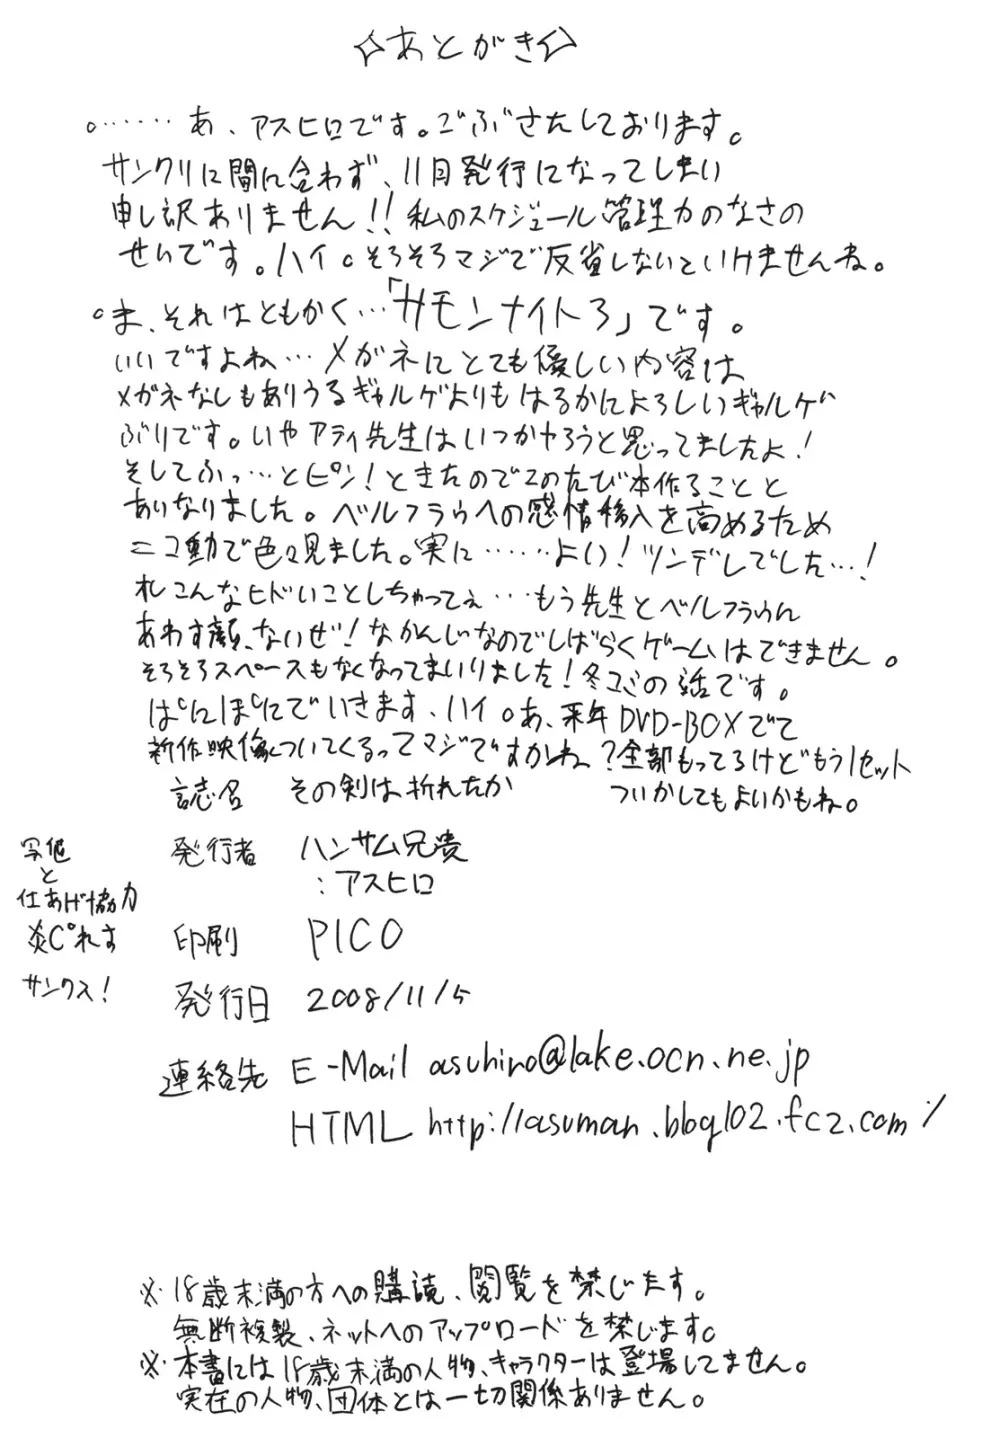 ☆あとがき☆
○……あ、アスヒロです。ごぶさたしております。
サンクリに間に合わず、11月発行になってしまい
申し訳ありません!!私のスケジュール管理力のなさの
せいです。ハイ。そろそろマジで反省しないといけませんね。
○ま、それはともかく…「サモンナイト3」です。
いいですよね…メガネにとても優しい内容は
メガネなしもありうるギャルゲよりもはるかによろしいギャルゲ
ぶりです。いやアティ先生はいつかやろうと思ってましたよ!
そしてふっ…とピン!ときたのでこのたび本作ることと
あいなりました。ベルフラウへの感情移入を高めるため
ニコ動で色々見ました。実に……よい!ツンデレでした…!
れこんなヒドいことしちゃってぇ…もう先生とベルフラウん
あわす顔、ないぜ!なかんじなのでしばらくゲームはできません。
そろそろスペースもなくなってまいりました!冬コミの話です。
ぱにぽにでいきます、ハイ。あ、来年DVD-BOXでて
新作映像ついてくるってマジですかね?全部もってるけどもう1セット
ついかしてもよいかもね。
誌名 その剣は折れたか
発行者 ハンサム兄貴
:アスヒロ
写植
と
仕あげ協力
炎ぴれす
サンクス!
印刷 PICO
発行日 2008/11/5
連絡先 E-Mail asuhiro@lake.ocn.ne.jp
HTML http://asuman.blog102.fc2.com/
※18歳未満の方への購読、閲覧を禁じます。
無断複製、ネットへのアップロードを禁じます。
※本書には18歳未満の人物、キャラクターは登場してません。
実在の人物、団体とは一切関係ありません。